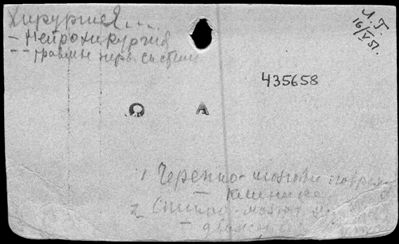 Хирургия...
- Нейрохирургия
-- травмы нерв. системы
Л.Г.
16/V 51.
435658
О А
1 Черепно-мозговые поврежд.
клиника
2 Спинно-